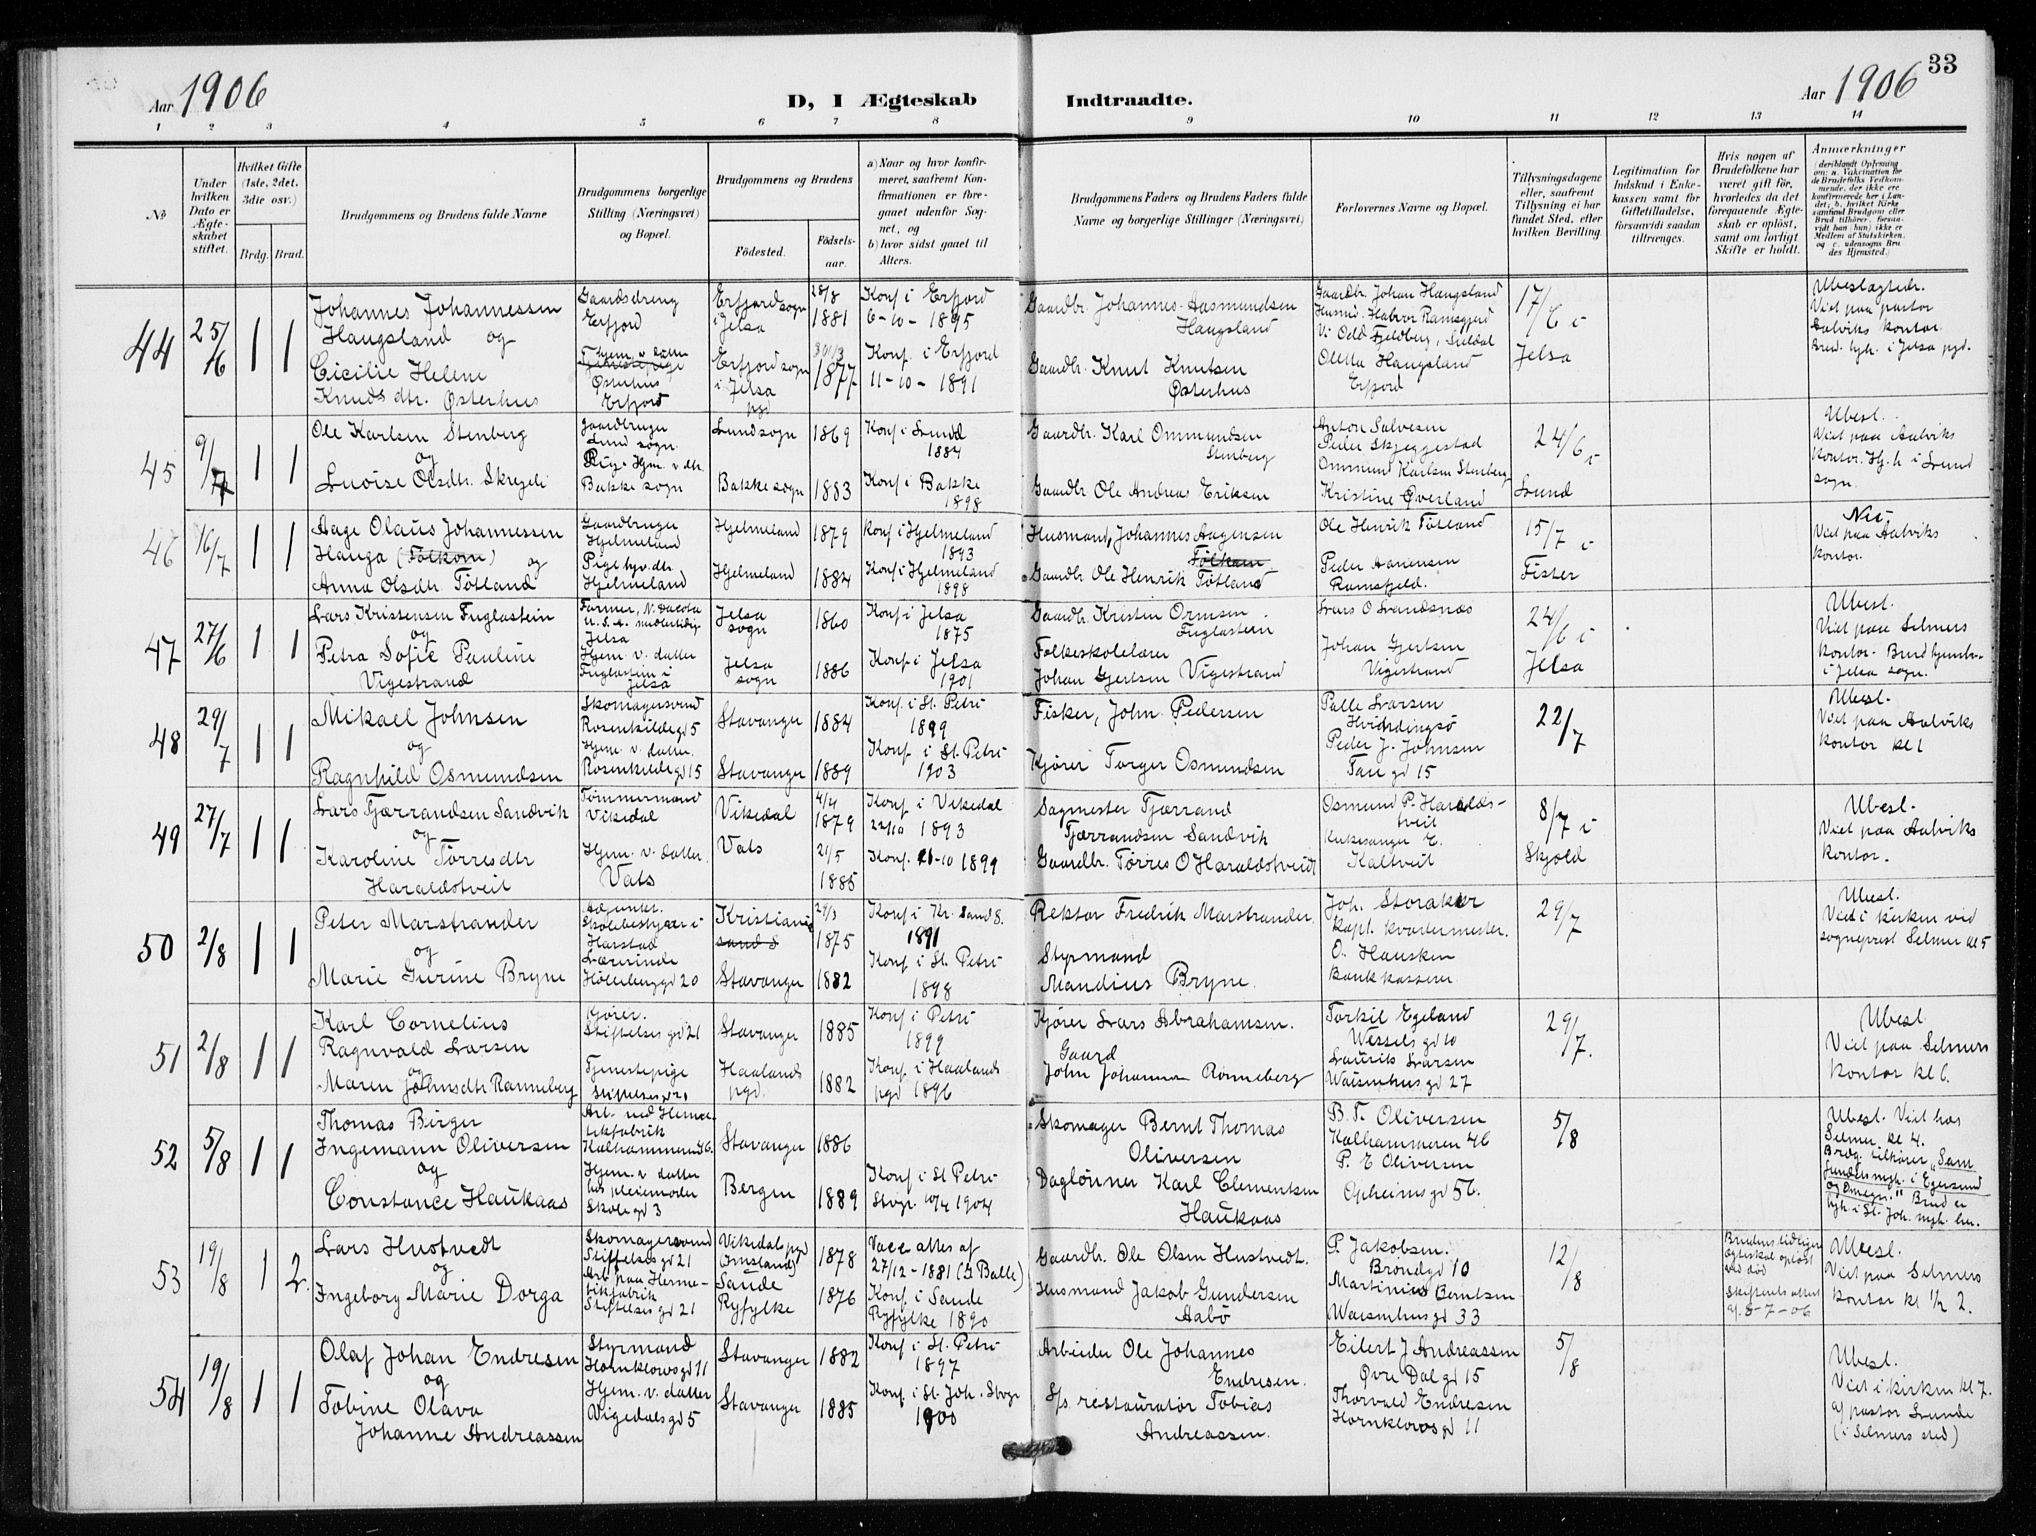 33
Aar 1906
D, I Ægteskab
Indtraadte.
Aar 1906
1 2 3 4 5 6 7 8 9 10 11 12 13 14
№
Under hvilken Dato er Ægteskabet stiftet.
Hvilket Gifte (1ste, 2det, 3die osv.)
Brdg. Brud.
Brudgommens og Brudens fulde Navne
Brudgommens borgerlige Stilling (Næringsvei) og Bopæl.
Brudgommens og Brudens
Födested.
Födselsaar.
a) Naar og hvor konfirmeret, saafremt Konfirmationen er foregaaet udenfor Sognet, og
b) hvor sidst gaaet til Alters.
Brudgommens Faders og Brudens Faders fulde Navne og borgerlige Stillinger (Næringsvei)
Forlovernes Navne og Bopæl.
Tillysningsdagene eller, saafremt Tillysning ei har fundet Sted, efter hvilken Bevilling.
Legitimation for Indskud i Enkekassen samt for Giftetilladelse, forsaavidt saadan tiltrænges.
Hvis nogen af Brudefolkene har været gift för, hvorledes da det foregaaende Ægteskab er oplöst, samt om lovligt Skifte er holdt.
Anmærkninger
44
25/6
1 1
Johannes Johannessen
Haugsland og
Cicilie Helene
Knuds dtr. Østerhus
Gaardsdreng
Erfjord
Hjem. v. datter
Østerhus
Erfjord
Erfjord sogn
i Jelsa
Erfjord sogn
i Jelsa
pgd
28/8
1881
1877
Konf i Erfjord
6-10-1895
Konf. i Erfjord
11-10-1891
Gaardbr. Johannes Aasmundsen
Haugsland
Gaardbr. Knut Knutsen
Østerhus
Gaardbr. Johan Haugsland
Husmd. Halvor Ramsfjord
Oletta Haugsland
Erfjord
17/6 i
Jelsa
Ubeslægtede.
Viet paa pastor
Aalviks kontor.
Brud. hjh. i Jelsa pgd.
45
9/7
1 1
Ole Karlsen Stenberg
og
Lovise Olsdtr. Skregeli
Gaardbruger
Lund sogn
Pige. Hjem. v. dtr.
Bakke sogn
Lund sogn
Bakke sogn
1869
1883
Konf i Lund
1884
Konf i Bakke
1898
Gaardbr. Karl Ommundsen
Stenberg
Gaardbr Ole Andreas Eriksen
Anton Salvesen
Peder Skjeggestad
Ommund Karlsen Stenberg
Kristine Øverland
24/6 i
Lund
Ubesl.
Viet paa Aalviks
kontor. Hj.h i Lund
sogn.
46
16/7
1 1
Aage Olaus Johannessen
Hauga (Følkom) og
Anna Olsdtr Tøtland
Gaardbruger
Hjelmeland
Pige hjv. dtr.
Hjelmeland
Hjelmeland
Hjelmeland
1879
1884
Konf i Hjelmeland
1893
Konf i Hjelmeland
1898
Husmand, Johannes Aagensen
Følkom
Gaardbr Ole Henrik Tøtland
Ole Henrik Tøtland
Peder Aanensen
Ramsfjeld.
15/7 i
Fister
Nei
Viet paa Aalviks
kontor.
47
27/6
1 1
Lars Kristensen Fuglestein
og
Petra Sofie Pauline
Vigestrand
Farmer, N. Dacota
U.S.A. midlertidig
Jelsa
Hjem. v. datter
Fuglestein i
Jelsa
Jelsa
sogn
Jelsa
sogn
1860
1886
Konf i Jelsa
1875
Konf i Jelsa
1901
Gaardbr. Kristen Ormsen
Fuglestein
Folkeskolelærer
Johan Gjertsen Vigestrand
Lars O Landsnæs
Johan Gjertsen
Vigestrand
24/6 i
Jelsa
Ubesl.
Viet paa Selmers
kontor. Brud hjemh.
i Jelsa sogn.
48
29/7
1 1
Mikael Johnsen
og
Ragnhild Osmundsen
Skomagersvend
Rosenkildegd 5
Hjem. v. datter.
Rosenkildegd 15
Stavanger
Stavanger
1884
1889
Konf i St. Petri
1899
Konf i St. Petri
1903
Fisker, John Pedersen
Kjører Torger Osmundsen
Palle Larsen
Hvidingsø
Peder J. Johnsen
Tau gd 15
22/7
Ubesl.
Viet paa Aalviks
kontor kl 1
49
27/7
1 1
Lars Tjærrandsen Sandvik
og
Karoline Tørresdtr
Haraldstveit
Tømmermand
Vikedal
Hjem. v. datter.
Vats
Vikedal
Vats
4/4
1879
21/5
1885
Konf. i Vikedal
22/10 1893
Konf. 21-10 1899
Sagmester Tjærrand
Tjærrandsen Sandvik
Gaardbr. Tørres O Haraldstveidt
Osmund P. Haralds-
tveit
Kirkesanger E.
Kaltveit
8/7 i
Skjold
Ubesl.
Viet paa Aalviks
kontor.
50
2/8
1 1
Peter Marstrander
og
Marie Gurine Bryne
Adjunkt.
Skolebestyrer i
Harstad
Lærerinde
Holebergd 20
Kristians
sand S
Stavanger
24/3
1875
1882
Konf i Kr. sand S.
1891
Konf i St. Petri
1898
Rektor Fredrik Marstrander.
Styrmand
Mandius Bryne.
Joh. Storaker
Kapt. kvartermester.
O. Hausken
Bankkasserer.
29/7
Ubesl.
Viet i kirken ved
sogneprest Selmer kl 5
51
2/8
1 1
Karl Cornelius
Ragnvald Larsen
og
Maren Johnsdtr Rønneberg
Kjører.
Stiftelses gd 21
Tjenestepige
Stiftelses gd 21
Stavanger
Haalands
pgd.
1885
1882
Konf i Petri
1899
Konf i Haalands
pgd 1896
Kjører Lars Abrahamsen.
Gaard
John Johannes Rønneberg
Torkil Egeland
Wessels gd 10
Laurits Larsen
Waisenhus gd 27
29/7.
Ubesl.
Viet paa Selmers
kontor kl 6.
52
5/8
1 1
Thomas Birger
Ingemann Oliversen
og
Constance Haukaas
Arb. ved Herme-
tikfabrik
Kalhammeren 46.
Hjem. v datter
hos pleiemoder
Skole gd 3
Stavanger
Bergen
1886
1889
Konf i St Petri
Stvgr. 10/4 1904
Skomager Bernt Thomas
Oliversen
Dagløner Karl Clementsen
Haukaas
B. T. Oliversen
Kalhammeren 46
P. E Oliversen
Opheims gd 56.
5/8
Ubesl. Viet hos
Selmer kl 4.
Brdg. tilhører "Sam
fundsmgh. i Egersund
og Omegn." Brud er
hjh. i St. Joh. mgh. her.
53
19/8
1 2.
Lars Hustvedt
og
Ingeborg Marie Dorga
Skomagersvend
Stiftelses gd 21
Arb. paa Herme-
tikfabrik
Stiftelses gd 21
Vikedal pgd
(Imsland)
Saude
Ryfylke
1878
1876
Vacc. attes af
27/12-1881
Konf i Saude
Ryfylke 1890
Gaardbr. Ole Olsen Hustvedt.
Husmand Jakob Gundersen
Aabø
P. Jakobsen.
Brøndgd 10
Martinius Berntsen
Waisenhus gd 33
12/8
Brudens tidligere
ægteskab opløst
ved død
Skifterets attest
af. 5-7-06
Ubesl.
Viet paa Selmers
kontor kl 1/2 2.
54
19/8
1 1
Olaf Johan Endresen
og
Tobine Olava
Johanne Andreassen
Styrmand
Hornkloves gd 11
Hjem. v. datter
Vigedals gd 5
Stavanger
Stavanger
1882
1885
Konf i St. Petri
1897
Konf. i St. Joh. Stvgr
1900
Arbeider Ole Johannes
Endresen.
S/s. restauratør Tobias
Andreassen.
Eilert J Andreassen
Øvre Dal gd 15
Thorvald Endresen
Hornkloves gd 11
5/8
Ubesl.
Viet i kirken kl 7.
af pastor Lunde
(i Selmers sted)